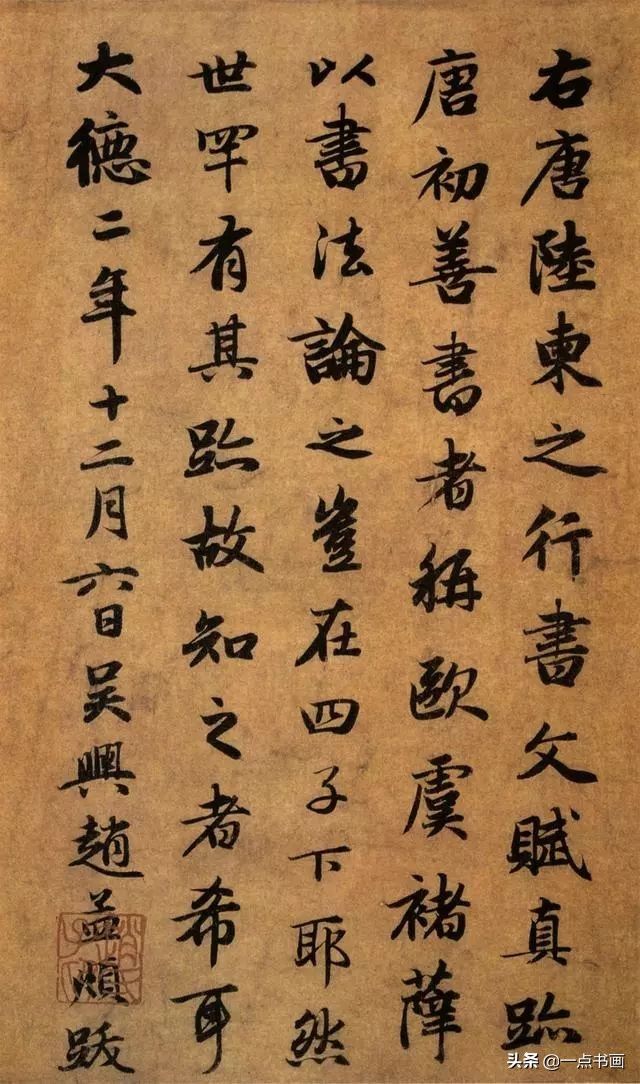 右唐陸柬之行書文賦真跡
唐初善書者稱歐虞褚薛
以書法論之豈在四子下耶然
世罕有其跡故知之者希耳
大德二年十二月六日吴興趙孟頫跋
头条 @一点书画